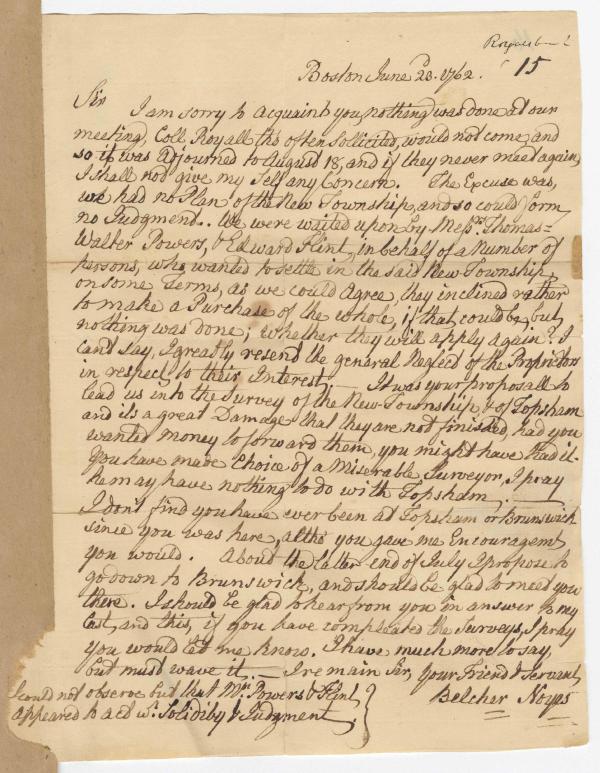 15
Boston June 23.d 1762.
Sir
I am sorry to acquaint you, nothing was done at our
meeting, Coll. Royall tho' often Sollicited, would not come, and
so it was adjourned to August 18, and if they never meet again,
I shall not give my Self any Concern. The Excuse was,
we had no Plan of the New Township, and so could form
no Judgment.. We were waited upon by Mess.rs Thomas=
Walter Powers, & Edward Flint, in behalf of a Number of
persons, who wanted to settle in the said New Township,
on some Terms, as we could Agree, they inclined rather
to make a Purchase of the whole, if that could be, but
nothing was done; whether they will apply again? I
cant say, I greatly resend the general Neglect of the Proprietors
in respect to their Interest. — It was your proposall to
lead us into the Survey of the New Township, & of Topsham
and its a great Damage that they are not finished, had you
wanted money to forward them, you might have had it.
You have made Choice of a Miserable Surveyor, I pray
he may have nothing to do with Topsham. —
I don't find you have ever been at Topsham or Brunswick
since you was here, altho you gave me Encouragem.t
you would. About the latter end of July I propose to
go down to Brunswick, and should be glad to meet you
there. I should be glad to hear from you in answer to my
last, and this, if you have compleated the Surveys, I pray
you would let me know. I have much more to say,
but must wave it. — I remain Sir, your Friend & Servant
Belcher Noyes
I could not observe but that M.rs Powers & Flint
appeared to act w.th Solidity & Judgment